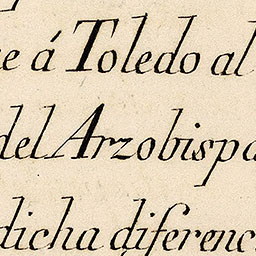 e á Toledo al
del Arzobispa
dicha diferenc